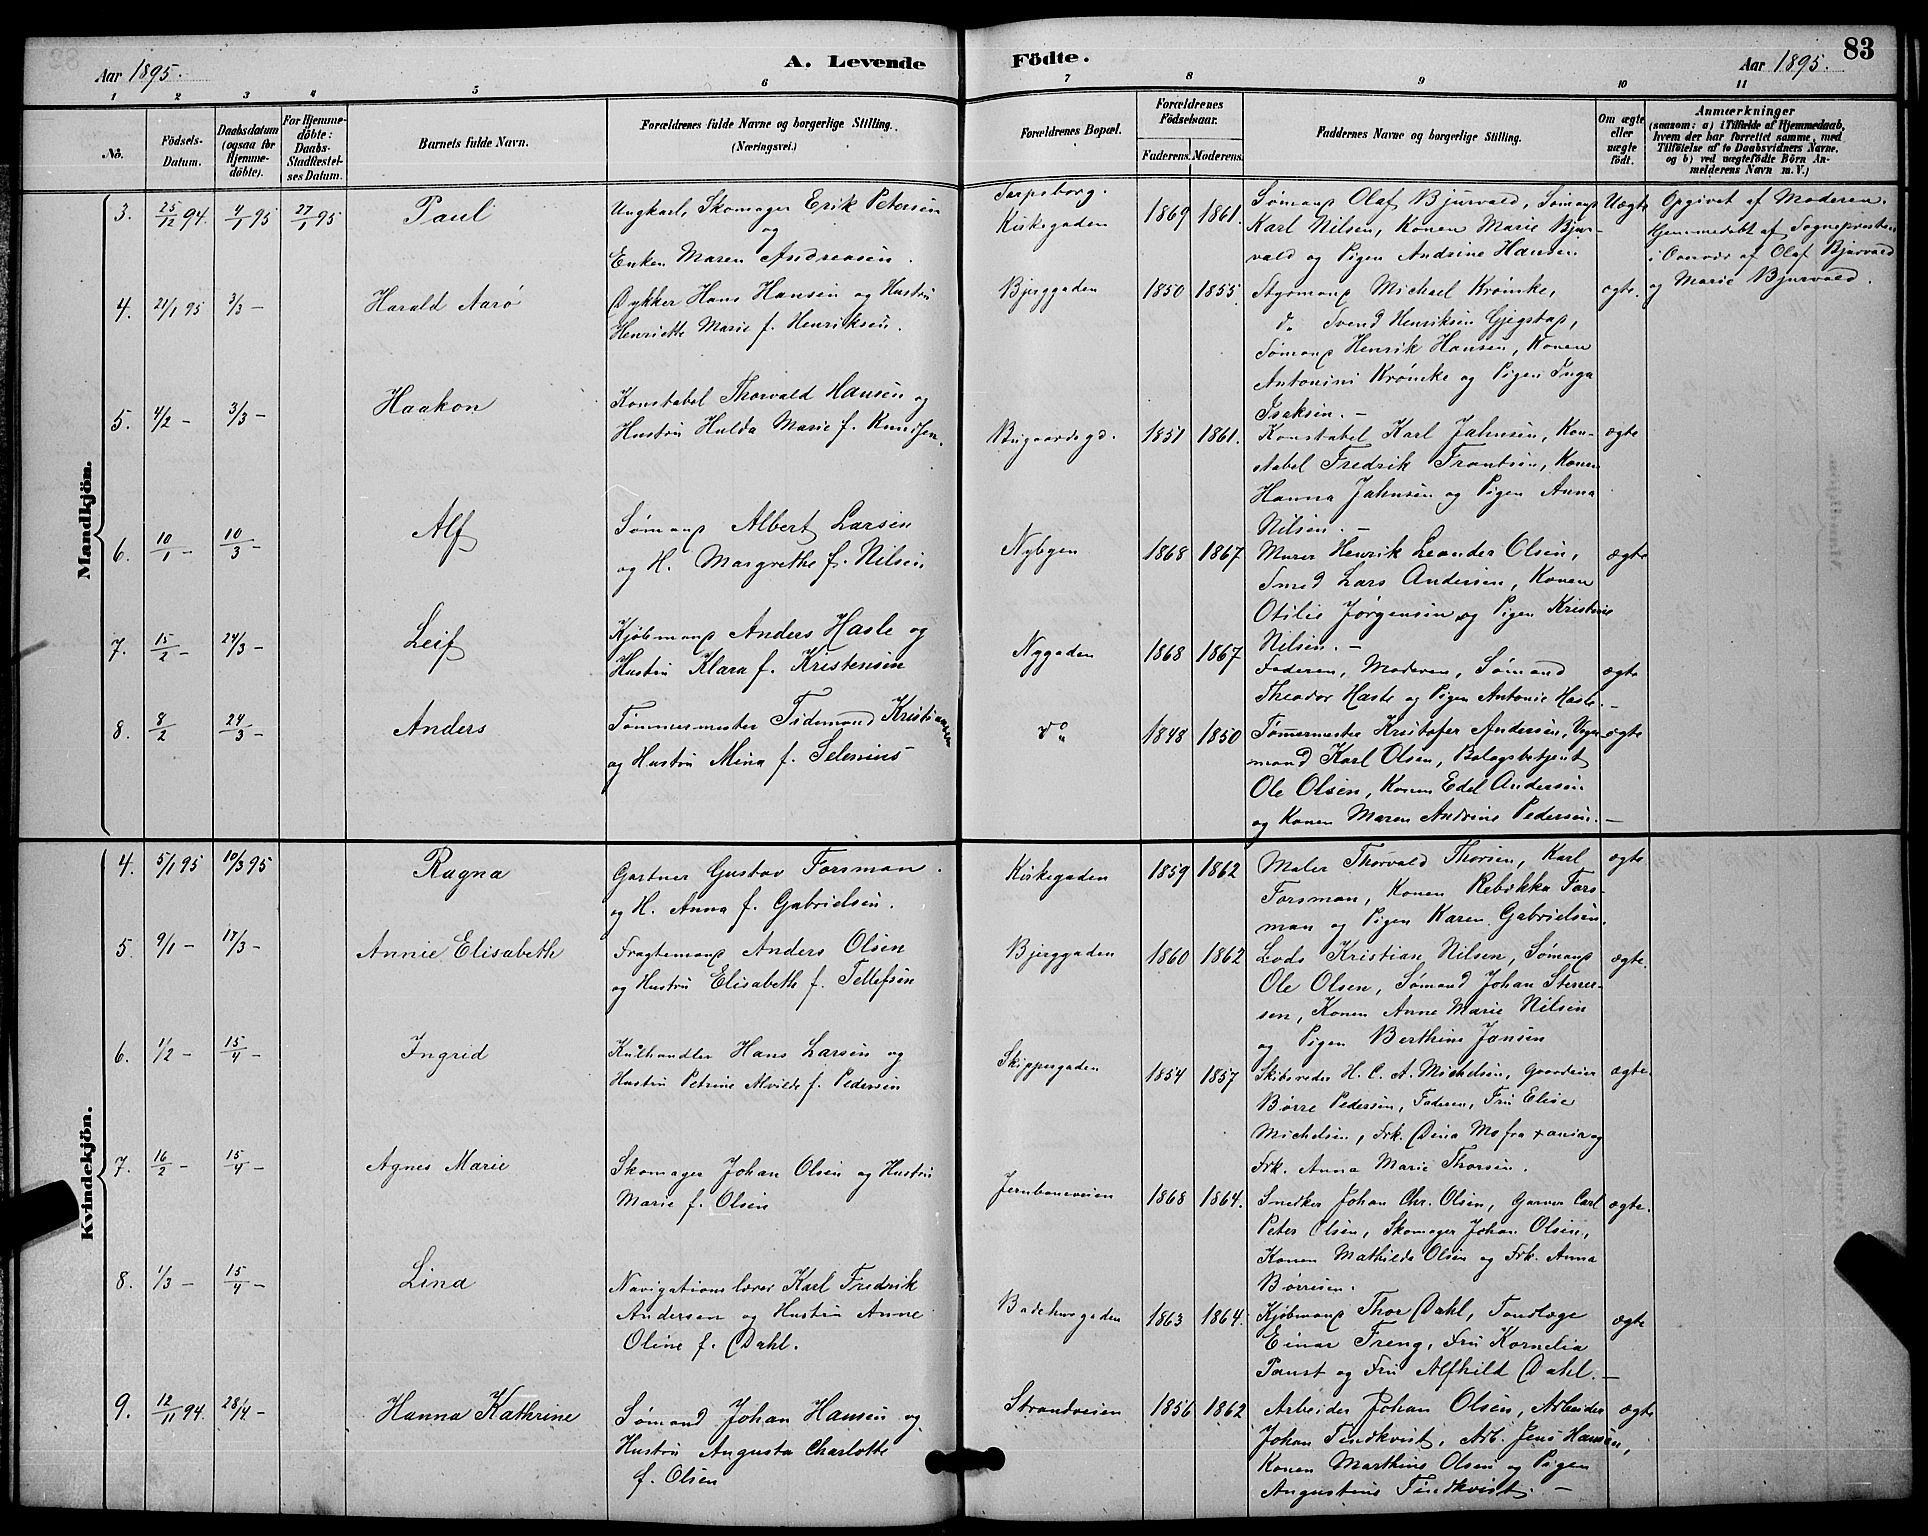 Aar 1895.
A. Levende Födte.
Aar 1895.
83
1 2 3 4 5 6 7 8 9 10 11
No.
Födsels-Datum.
Daabsdatum (ogsaa for Hjemmedöbte).
For Hjemmedöbte: Daabs-Stadfæstelses Datum.
Barnets fulde Navn.
Forældrenes fulde Navne og borgerlige Stilling. (Næringsvei.)
Forældrenes Bopæl.
Forældrenes Födselsaar.
Faderens. Moderens.
Faddernes Navne og borgerlige Stilling.
Om ægte eller uægte födt.
Anmærkninger
(saasom: a) i Tilfælde af Hjemmedaab, hvem der har forrettet samme, med Tilföielse af to Daabsvidners Navne, og b) ved uægtefödte Börn Anmelderens Navn m. V.)
Mandkjön.
3. 25/12 94. 4/1 95 27/1 95 Paul
Ungkarl, Skomager Erik Petersen
og
Enken Maren Andreasen.
Kirkegaden 1869 1861.
Sømand Olaf Bjurvald, Sømand
Karl Nilsen, Konen Marie Bjur-
vald og Pigen Andrine Hansen
Uægte
Opgivet af Moderen.
Hjemmedøbt af Sognepresten
i Overvær af Olaf Bjurvald
og Marie Bjurvald.
4. 21/1 95 3/3 - Harald Aarø
Dykker Hans Hansen og Hustru
Henriette Marie f. Henriksen.
Bjerggaden 1850 1855.
Styrmand Michael Krømke,
do Svend Henriksen
Sømand Henrik Hansen, Konen
Antonini Krømke og Pigen Inga
Isaksen. -
ægte.
5. 4/2 - 3/3 - Haakon
Konstabel Thorvald Hansen og
Hustru Hulda Marie f. Knudsen.
Bugaardsgd. 1851 1861.
Konstabel Karl Jahnsen, Kon-
stabel Fredrik Frantsen, Konen
Hanna Jahnsen og Pigen Anna
Nilsen. -
ægte
6. 10/1 - 10/3 - Alf
Sømand Albert Larsen
og H. Margrethe f. Nilsen
Nybyen 1868 1867
Murer Henrik Leander Olsen,
Smed Lars Andersen, Konen
Otilie Jørgensen og Pigen Kristine
Nilsen. -
ægte
7. 15/2 - 24/3 - Leif
Kjøbmand Anders Hasle og
Hustru Klara f. Kristensen
Nygaden 1868 1867
Faderen, Moderen, Sømand
Theodor Hasle og Pigen Antonie Hasle. -
ægte
8. 8/2 24/3 - Anders
Tømmermester Tidemand Kristiansen
og Hustru Mina f. Selenius
do 1848 1850
Tømmermester Kristofer Andersen,
mand Karl Olsen, Bologsbetjent
Ole Olsen, Konen Edel Andersen
og Konen Maren Andrine Pedersen. -
ægte
Kvindekjön.
4. 5/1 95 10/3 95 Ragna
Gartner Gustav Forsman.
og H. Anna f. Gabrielsen.
Kirkegaden 1859 1862
Maler Thorvald Thorsen, Karl
Forsman, Konen Rebekka Fors-
man og Pigen Karen Gabrielsen.
ægte
5. 9/1 - 17/3 - Annie Elisabeth
Fragtemand Anders Olsen
og Hustru Elisabeth f. Tellefsen
Bjerggaden 1860 1862
Lods Kristian Nilsen, Sømand
Ole Olsen, Sømand Johan
sen, Konen Anne Marie Nilsen
og Pigen Berthine Jansen
ægte.
6. 1/2 - 15/4 - Ingrid
Kulhandler Hans Larsen og
Hustru Petrine Alvilde f. Pedersen
Skippergaden 1854 1857
Skibsreder H. C. A. Michelsen, Gaardeier
Børre Pedersen, Faderen, Fru Elise
Michelsen, Frk. Dina og
Frk. Anna Marie Thorsen.
ægte.
7. 16/2 - 15/4 - Agnes Marie
Skomager Johan Olsen og Hustru
Marie f. Olsen
Jernbaneveien 1868 1864.
Snedker Johan Chr. Olsen, Garver Carl
Peter Olsen, Skomager Johan Olsen,
Konen Mathilde Olsen og Frk. Anna
Børresen.
ægte.
8. 1/3 - 15/4 - Lina
Navigationslærer Karl Fredrik
Andersen og Hustru Anne
Oline f. Dahl.
Badehusgaden 1863 1864.
Kjøbmand Thor Dahl, Tandlæge
Einar Freng, Fru Kornelia
Paust og Fru Alfhild Dahl. -
ægte
9. 12/11 94. 28/4 - Hanna Kathrine
Sømand Johan Hansen og
Hustru Augusta Charlotte
f. Olsen
Strandveien 1856 1862
Arbeider Johan Olsen, Arbeider
Johan Findkvist, Arb. Jens Hansen,
Konen Marthine Olsen og Pigen
Augustine Findkvist. -
ægte